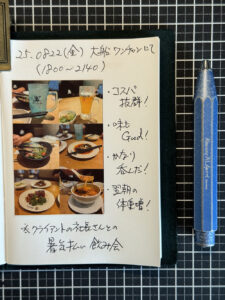 25.0822(金) 大船 ワンチャンにて
(1800〜2140)
・コスパ
抜群!
・味も
Good!
・かなり
呑んだ!
・翌朝の
体重増!
※クライアントの社長さんとの
暑気払い飲み会